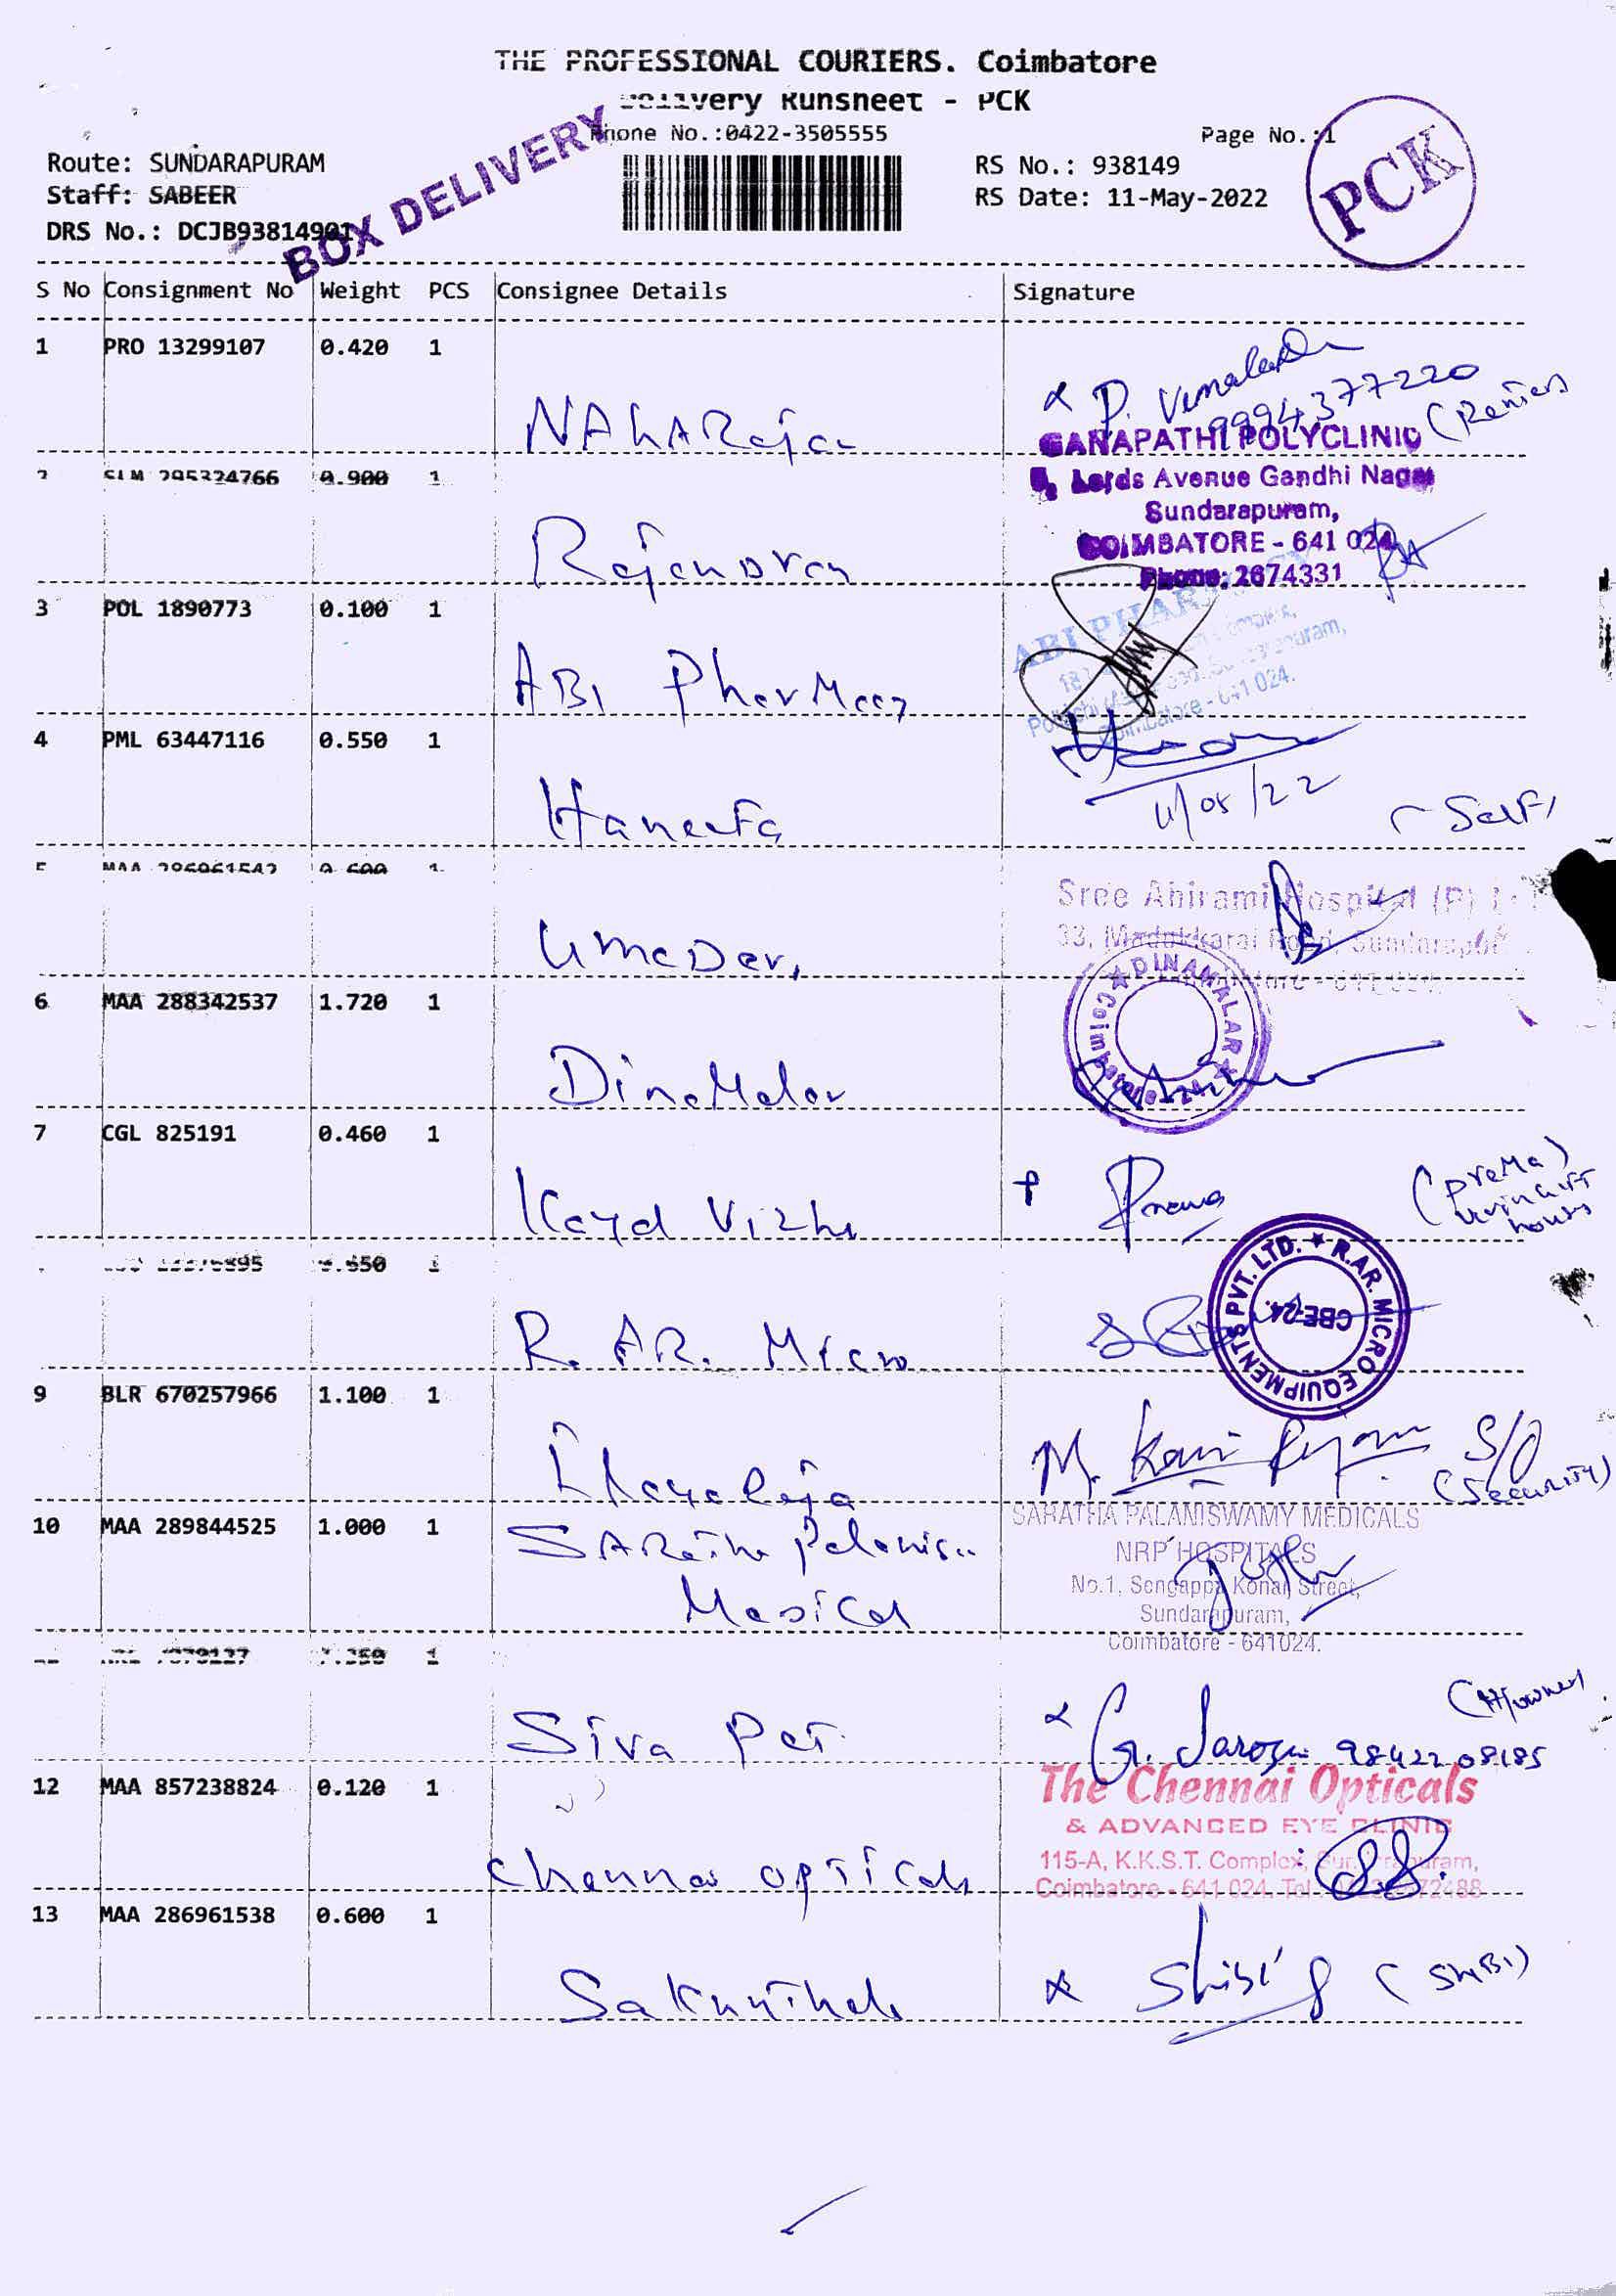 THE PROFESSIONAL COURIERS. Coimbatore
Delivery Runsheet - PCK
Phone No.:0422-3505555
Page No.:1
PCK
BOX DELIVERY
Route: SUNDARAPURAM
RS No.: 938149
Staff: SABEER
RS Date: 11-May-2022
DRS No.: DCJB93814901
S No Consignment No Weight PCS Consignee Details Signature
1 PRO 13299107 0.420 1
P. 9994377220
GANAPATHI POLYCLINIC
Lords Avenue Gandhi Nagar
Sundarapuram,
COIMBATORE - 641 024
Phone: 2674331
2 SLM 295324766 0.900 1
3 POL 1890773 0.100 1
ABI Pharmacy
ABI PHARMACY
Coimbatore - 641 024.
4 PML 63447116 0.550 1
Haneefa
11/05/22
(Self)
5 MAA 286961542 0.600 1
Uma Devi
Sree Abirami Hospital (P)
33, Madukkarai Road, Sundarapur
6 MAA 288342537 1.720 1
DinaMalar
DINAMALAR
Coimbatore
7 CGL 825191 0.460 1
Kayal Vizhi
Prema
(Prema)
0.650 1
R. AR. Micro
R.AR. MICRO EQUIPMENTS PVT. LTD.
CBE-24.
9 BLR 670257966 1.100 1
Ilayaraja
M. S/O
(Security)
10 MAA 289844525 1.000 1
Saratha Palanisa
Medical
SARATHA PALANISWAMY MEDICALS
NRP HOSPITALS
No.1, Sengappa Konar Street,
Sundarapuram,
Coimbatore - 641024.
1
Siva Pet
G. Saroja 9842208185
12 MAA 857238824 0.120 1
Chennai opticals
The Chennai Opticals
& ADVANCED EYE CLINIC
115-A, K.K.S.T. Complex, Sundarapuram,
Coimbatore - 641 024. Tel
13 MAA 286961538 0.600 1
Sakunthala
Shibi
(SHIBI)